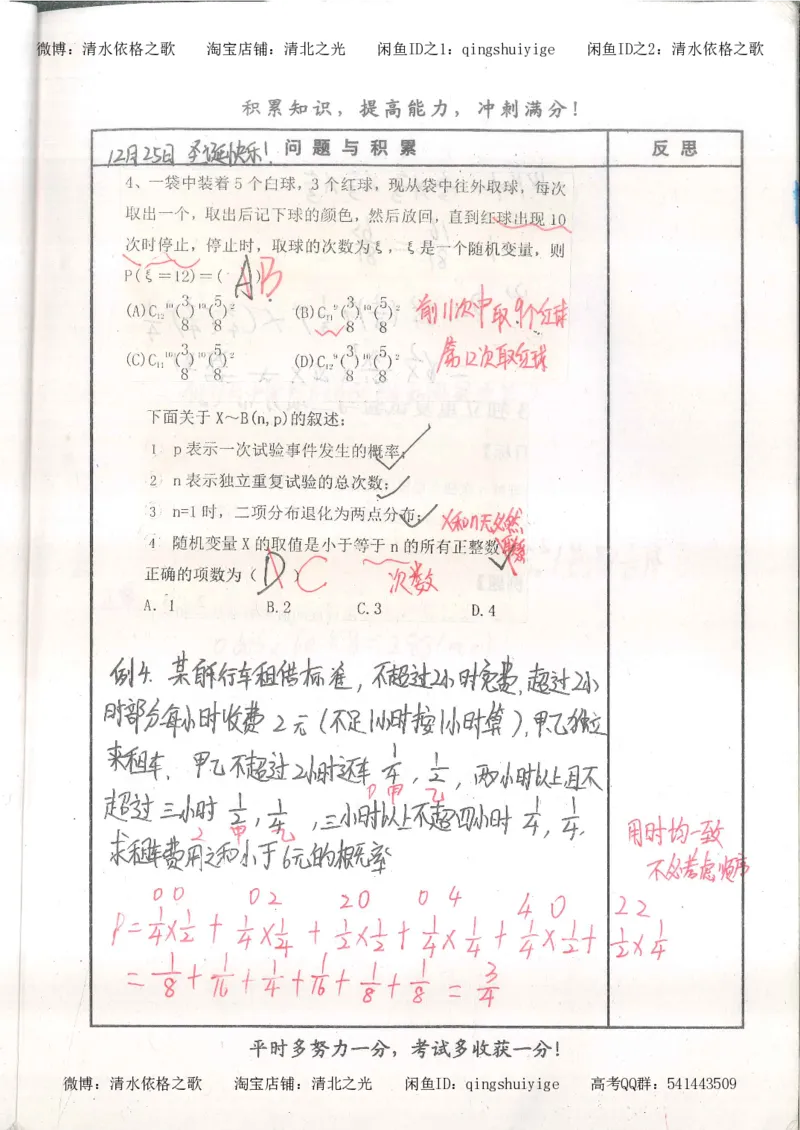 微博：清水依格之歌 淘宝店铺：清北之光 闲鱼ID之1：qingshuiyige 闲鱼ID之2：清水依格之歌
积累知识，提高能力，冲刺满分！
12月25日 圣诞快乐！ 问题与积累 反思
4、一袋中装着5个白球，3个红球，现从袋中往外取球，每次
取出一个，取出后记下球的颜色，然后放回，直到红球出现10
次时停止，停止时，取球的次数为ξ，ξ是一个随机变量，则
P(ξ=12)=( A ) B
(A)C₁₂¹⁰(3/8)¹⁰(5/8)² (B)C₁₁⁹(3/8)¹⁰(5/8)² 前11次中取9个红球
(C)C₁₁¹⁰(3/8)¹⁰(5/8)² (D)C₁₂⁹(3/8)¹⁰(5/8)² 第12次取红球
下面关于X～B(n,p)的叙述：
1 p表示一次试验事件发生的概率；
2 n表示独立重复试验的总次数；
3 n=1时，二项分布退化为两点分布；
X和n无必然
4 随机变量X的取值是小于等于n的所有正整数
正确的项数为（ D ） C 次数
A. 1 B.2 C.3 D.4
例4. 某自行车租借标准，不超过2小时免费，超过2小
时部分每小时收费2元（不足1小时按1小时算），甲乙独立
来租车，甲乙不超过2小时还车 1/4，1/2，两小时以上且不
0 甲 乙
超过三小时 1/2，1/4，三小时以上不超四小时 1/4，1/4，
2 甲 乙
求租车费用之和小于6元的概率
用时均一致
不必考虑顺序
00 02 20 04 40 22
P=1/4×1/2+1/4×1/4+1/2×1/2+1/4×1/4+1/4×1/2+1/2×1/4
=1/8+1/16+1/4+1/16+1/8+1/8=3/4
平时多努力一分，考试多收获一分！
微博：清水依格之歌 淘宝店铺：清北之光 闲鱼ID：qingshuiyige 高考QQ群：541443509